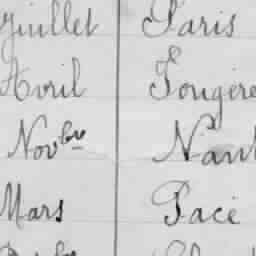 Juillet Paris
Avril Fougère
Novbre Nant
Mars Pacé